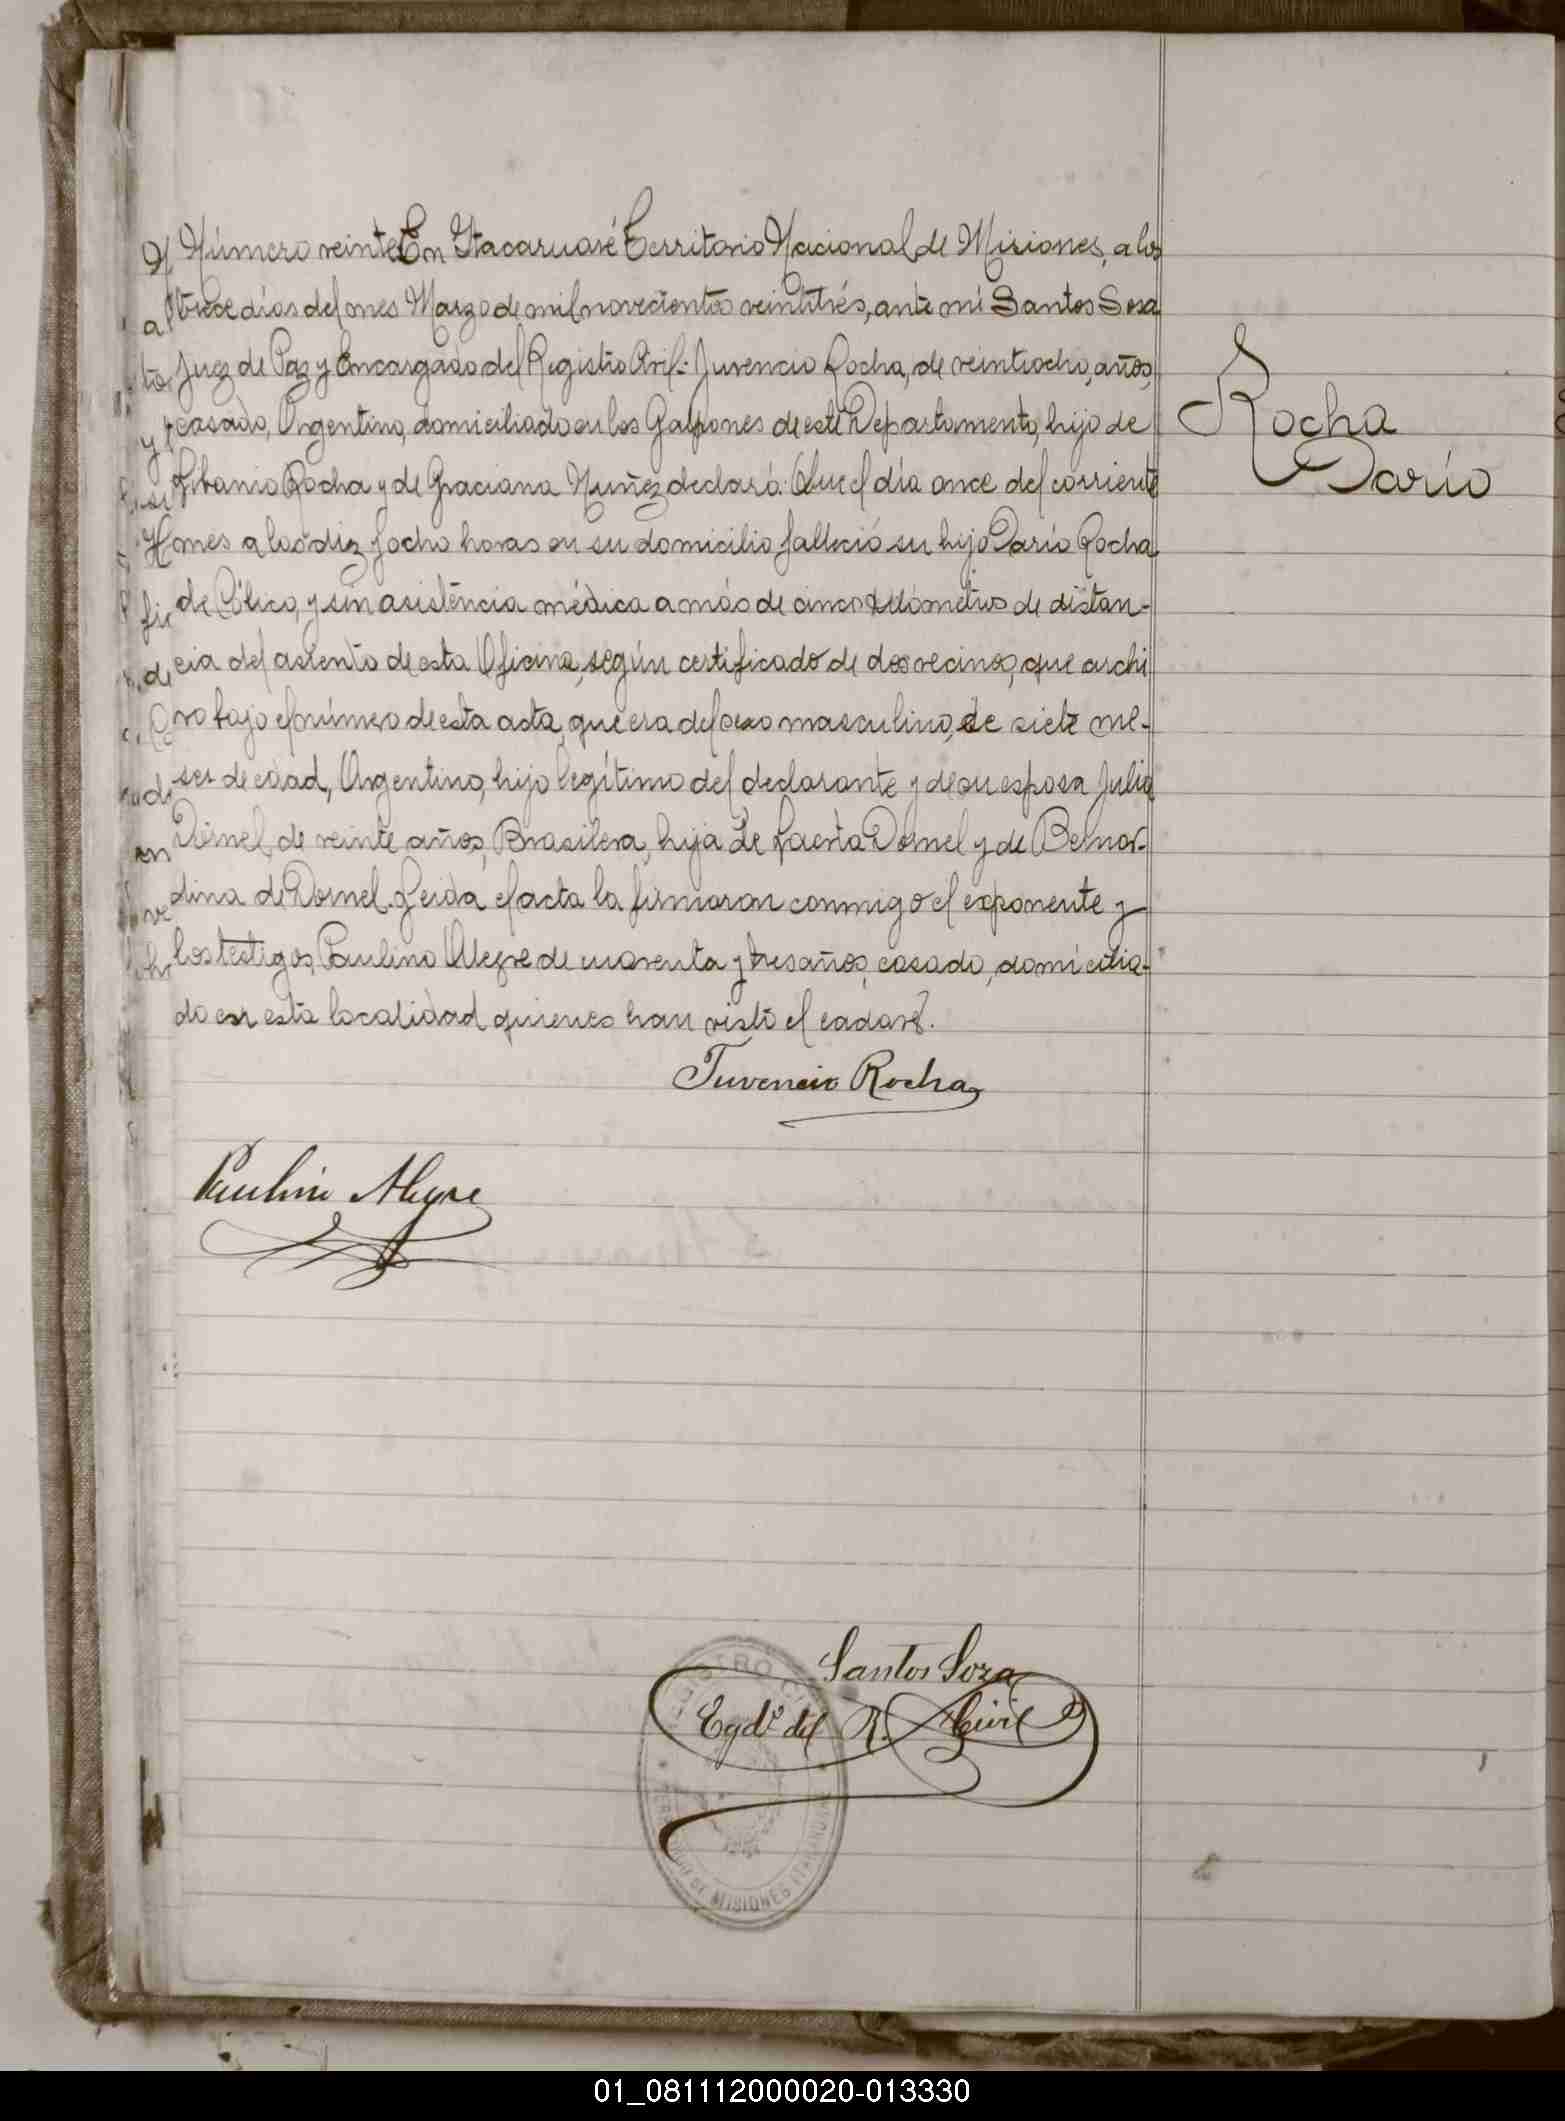 Número veinte En Itacaruaré Territorio Nacional de Misiones, a los
trece días del mes Marzo de mil novecientos veintitrés, ante mi Santos Sosa
Juez de Paz y Encargado del Registro Civil: Juvencio Rocha, de veintiocho, años,
casado, Argentino, domiciliado en los Galpones de este Departamento, hijo de
Libanio Rocha y de Graciana Nuñez declaró: Que el día once del corriente
mes a las diez y ocho horas en su domicilio falleció su hijo Darío Rocha
de Cólico, y sin asistencia médica a más de cinco kilómetros de distan-
cia del asiento de esta Oficina, según certificado de dos vecinos, que archi
vo bajo el número de esta acta, que era del sexo masculino, de siete me-
ses de edad, Argentino, hijo legítimo del declarante y de su esposa Julia
Dornel, de veinte años, Brasilera, hija de Laerta Dornel y de Bernar-
dina de Dornel. Leída el acta la firmaron conmigo el exponente y
los testigos, Paulino Alegre de cuarenta y tres años, casado, domicilia-
do en esta localidad quienes han visto el cadaver.
Rocha
Darío
Juvencio Rocha
Paulino Alegre
Santos Soza
Egdo. del R. Civil
REGISTRO CIVIL
TERRITORIO DE MISIONES
01_081112000020-013330